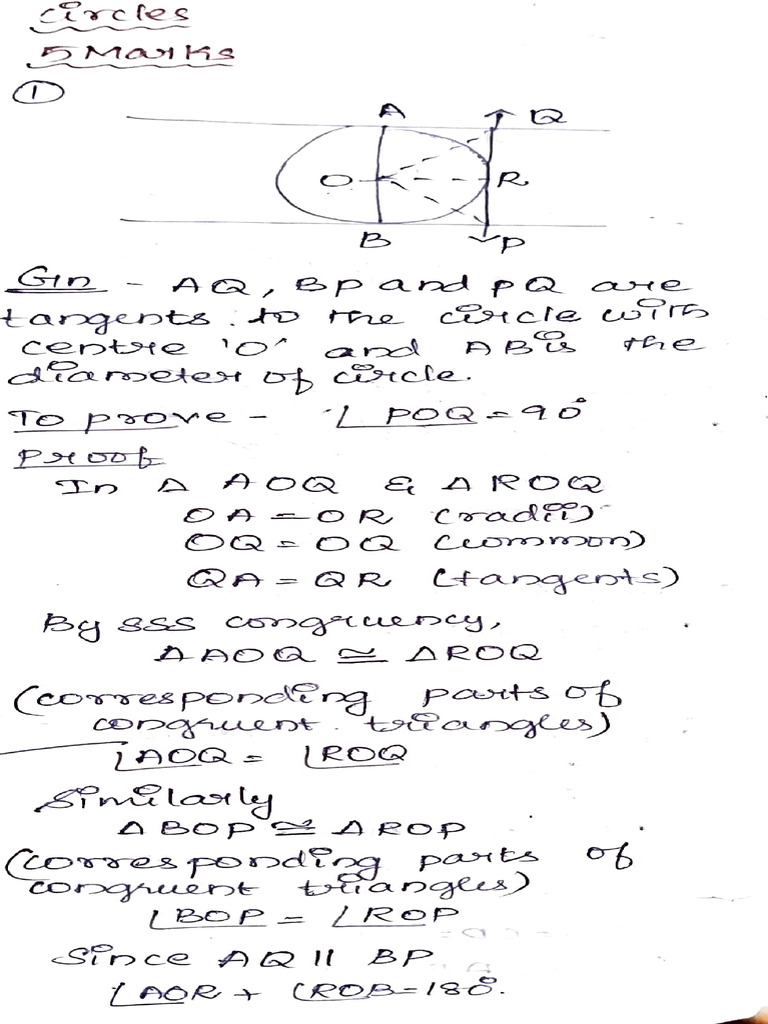 circles
5 Marks
①
A Q
O R
B P
Gin - AQ, BP and PQ are
tangents to the circle with
centre 'O' and AB is the
diameter of circle.
To prove - ∠POQ = 90°
Proof
In △ AOQ & △ ROQ
OA = OR (radii)
OQ = OQ (common)
QA = QR (tangents)
By SSS congruency,
△AOQ ≅ △ROQ
(corresponding parts of
congruent triangles)
∠AOQ = ∠ROQ
Similarly
△BOP ≅ △ROP
(corresponding parts of
congruent triangles)
∠BOP = ∠ROP
Since AQ || BP
∠AOR + ∠ROB = 180°.